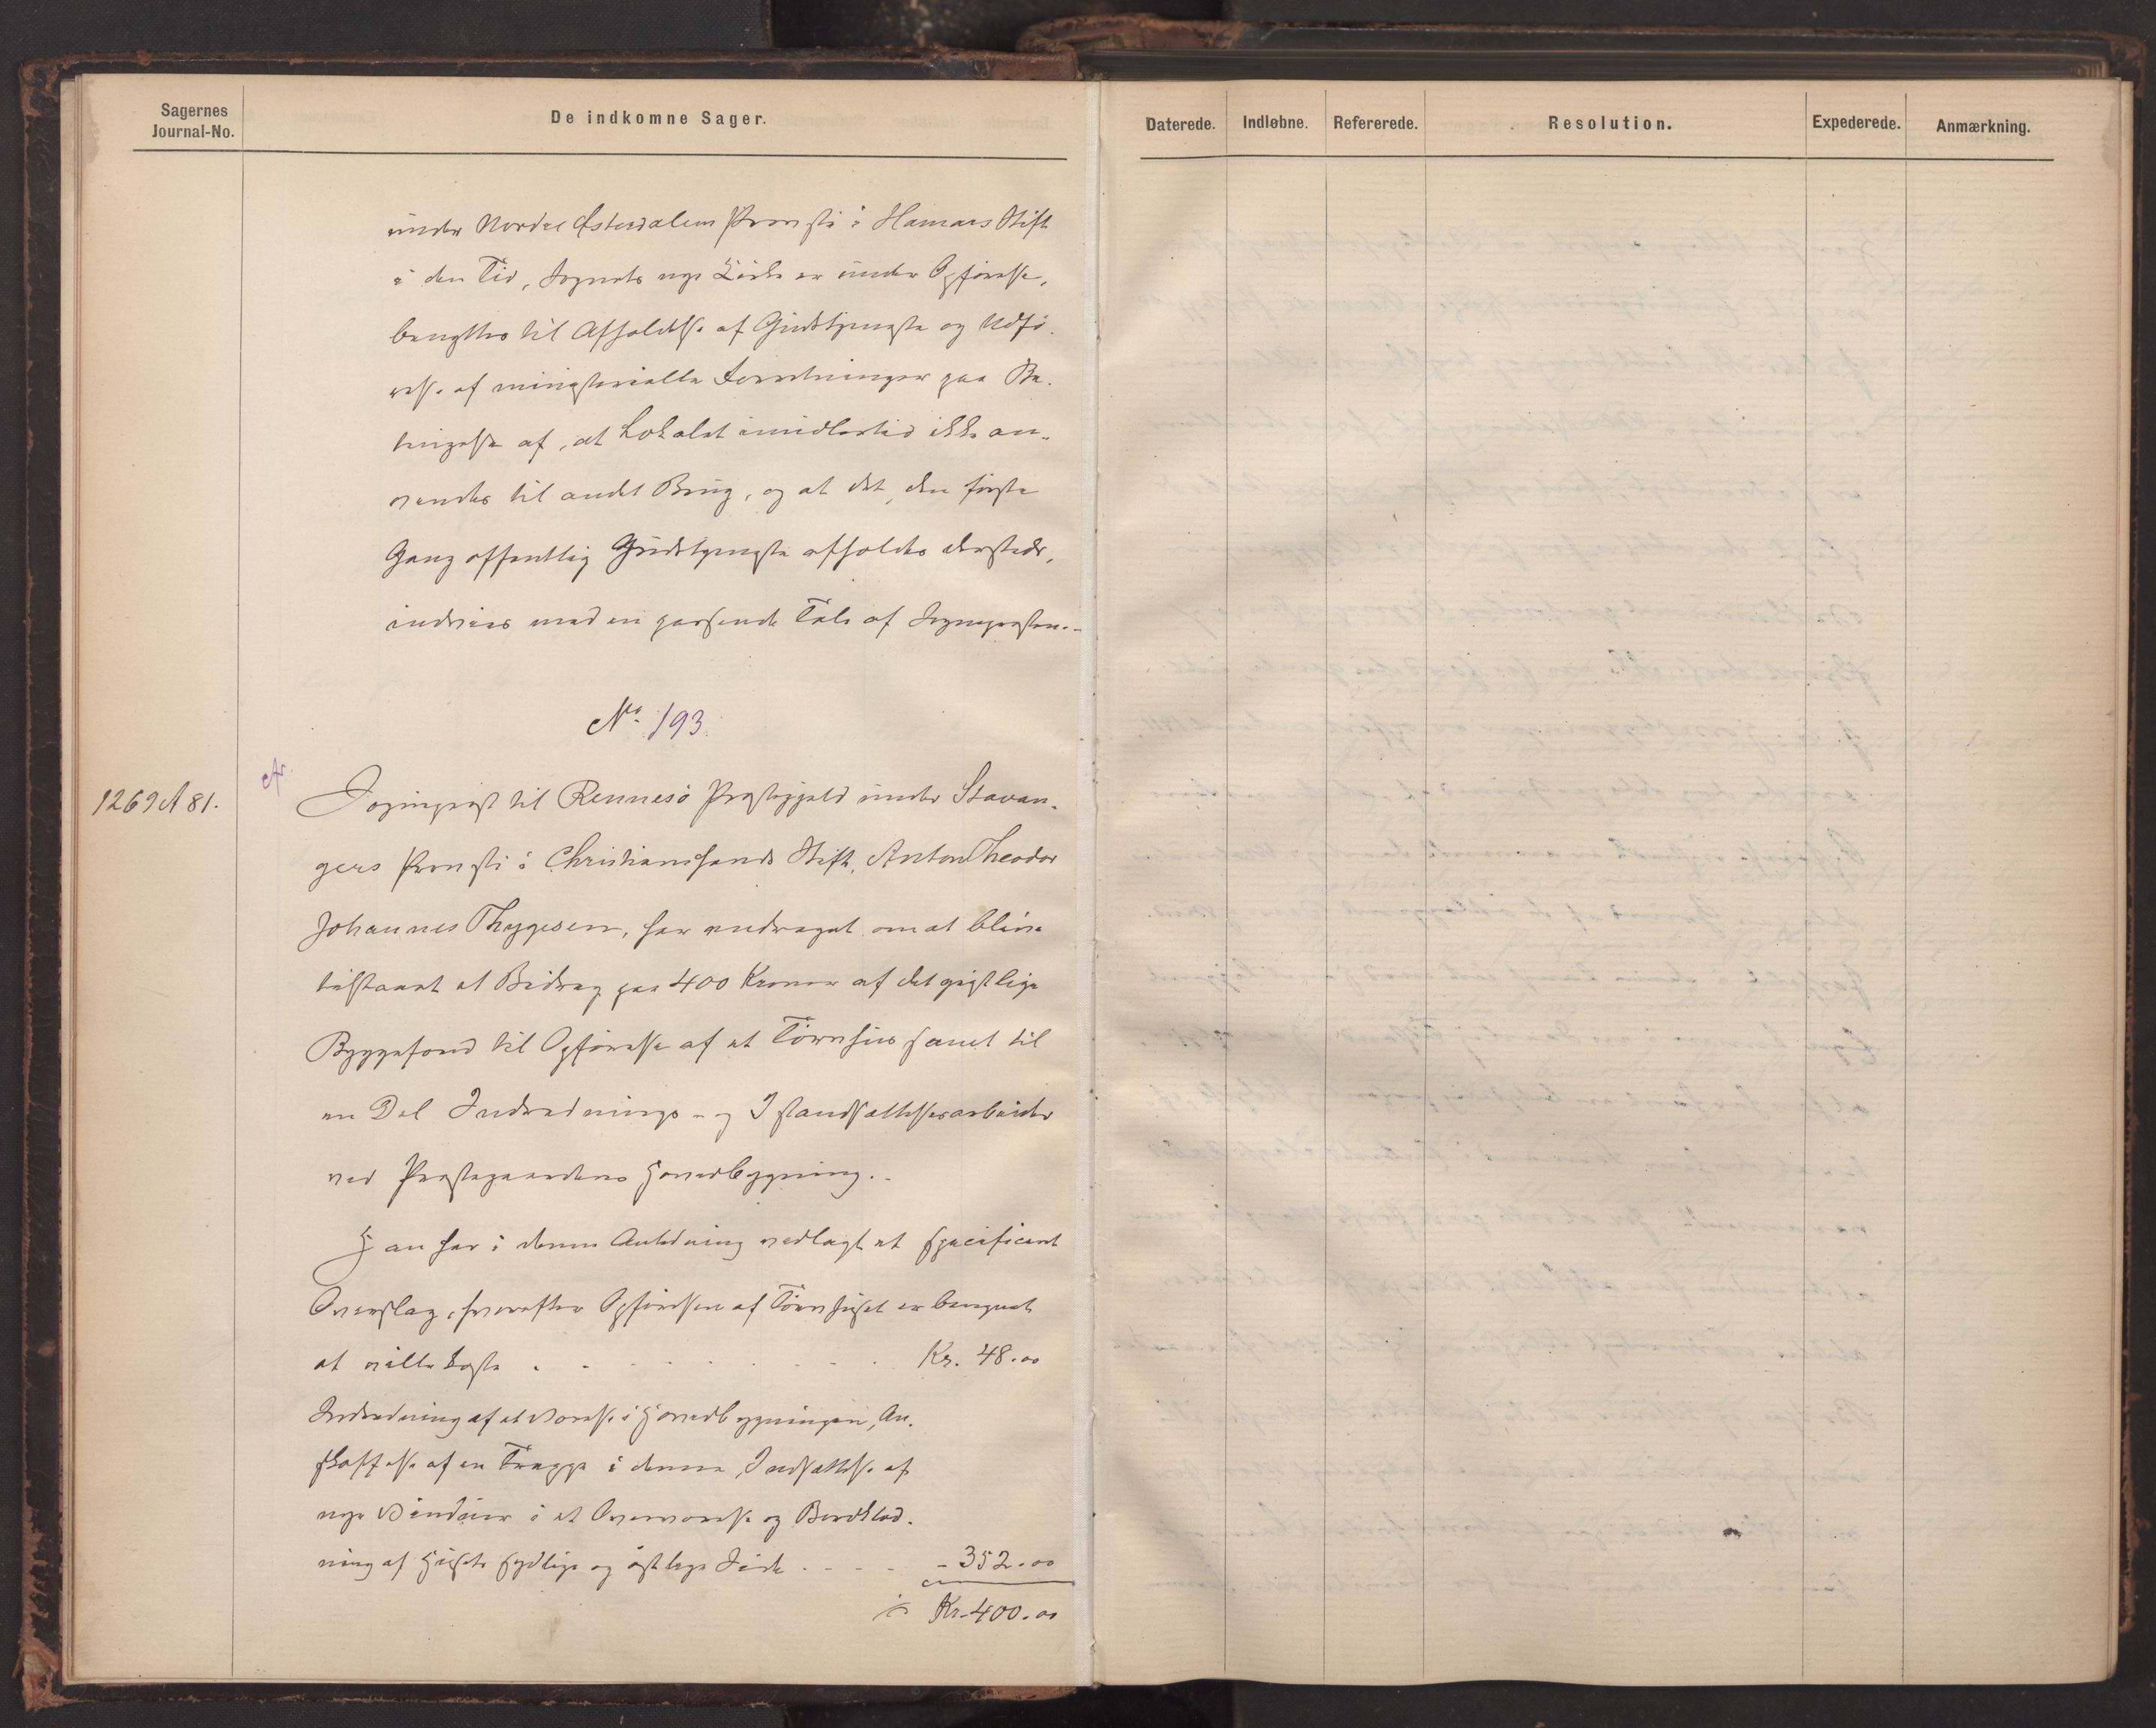 Sagernes
Journal-No.
De indkomne Sager.
Daterede.
Indløbne.
Refererede.
Resolution.
Expederede.
Anmærkning.
under Nordre Østerdalens Provsti i Hamars Stift
i den Tid, Sognets nye Kirke er under Opførelse,
benyttes til Afholdelse af Gudstjeneste og Udfø-
relse af ministerielle Forretninger paa Be-
tingelse af, at Lokalet imidlertid ikke an-
vendes til andet Brug, og at det, den første
Gang offentlig Gudstjeneste afholdes dersteds,
indvies med en passende Tale af Sognepræsten.-
No. 193.
cfr.
1269 A 81.
Sognepræst til Rennesø Præstegjeld under Stavan-
gers Provsti i Christianssands Stift, Anton Theodor
Johannes Thygesen, har andraget om at blive
tilstaaet et Bidrag paa 400 Kroner af det geistlige
Byggefond til Opførelse af et Tørvhus samt til
en Del Indrednings- og Istandsættelsesarbeider
ved Præstegaardens Hovedbygning.-
Han har i denne Anledning vedlagt et specificeret
Overslag, hvorefter Opførelsen af Tørvhuset er beregnet
at ville koste . . . . . . . . . Kr. 48.00
Indredning af et Værelse i Hovedbygningen, An-
skaffelse af en Trappe i denne, Indsættelse af
nye Vinduer i et Overværelse og Bordklæd-
ning af Husets sydlige og østlige Side . . . . - 352.00
Kr. 400.00